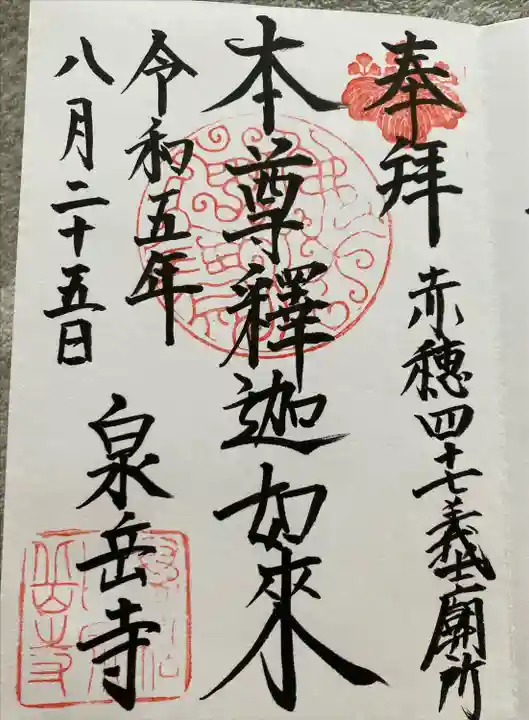 奉拝
赤穂四十七義士廟所
本尊釋迦如來
令和五年
八月二十五日
泉岳寺